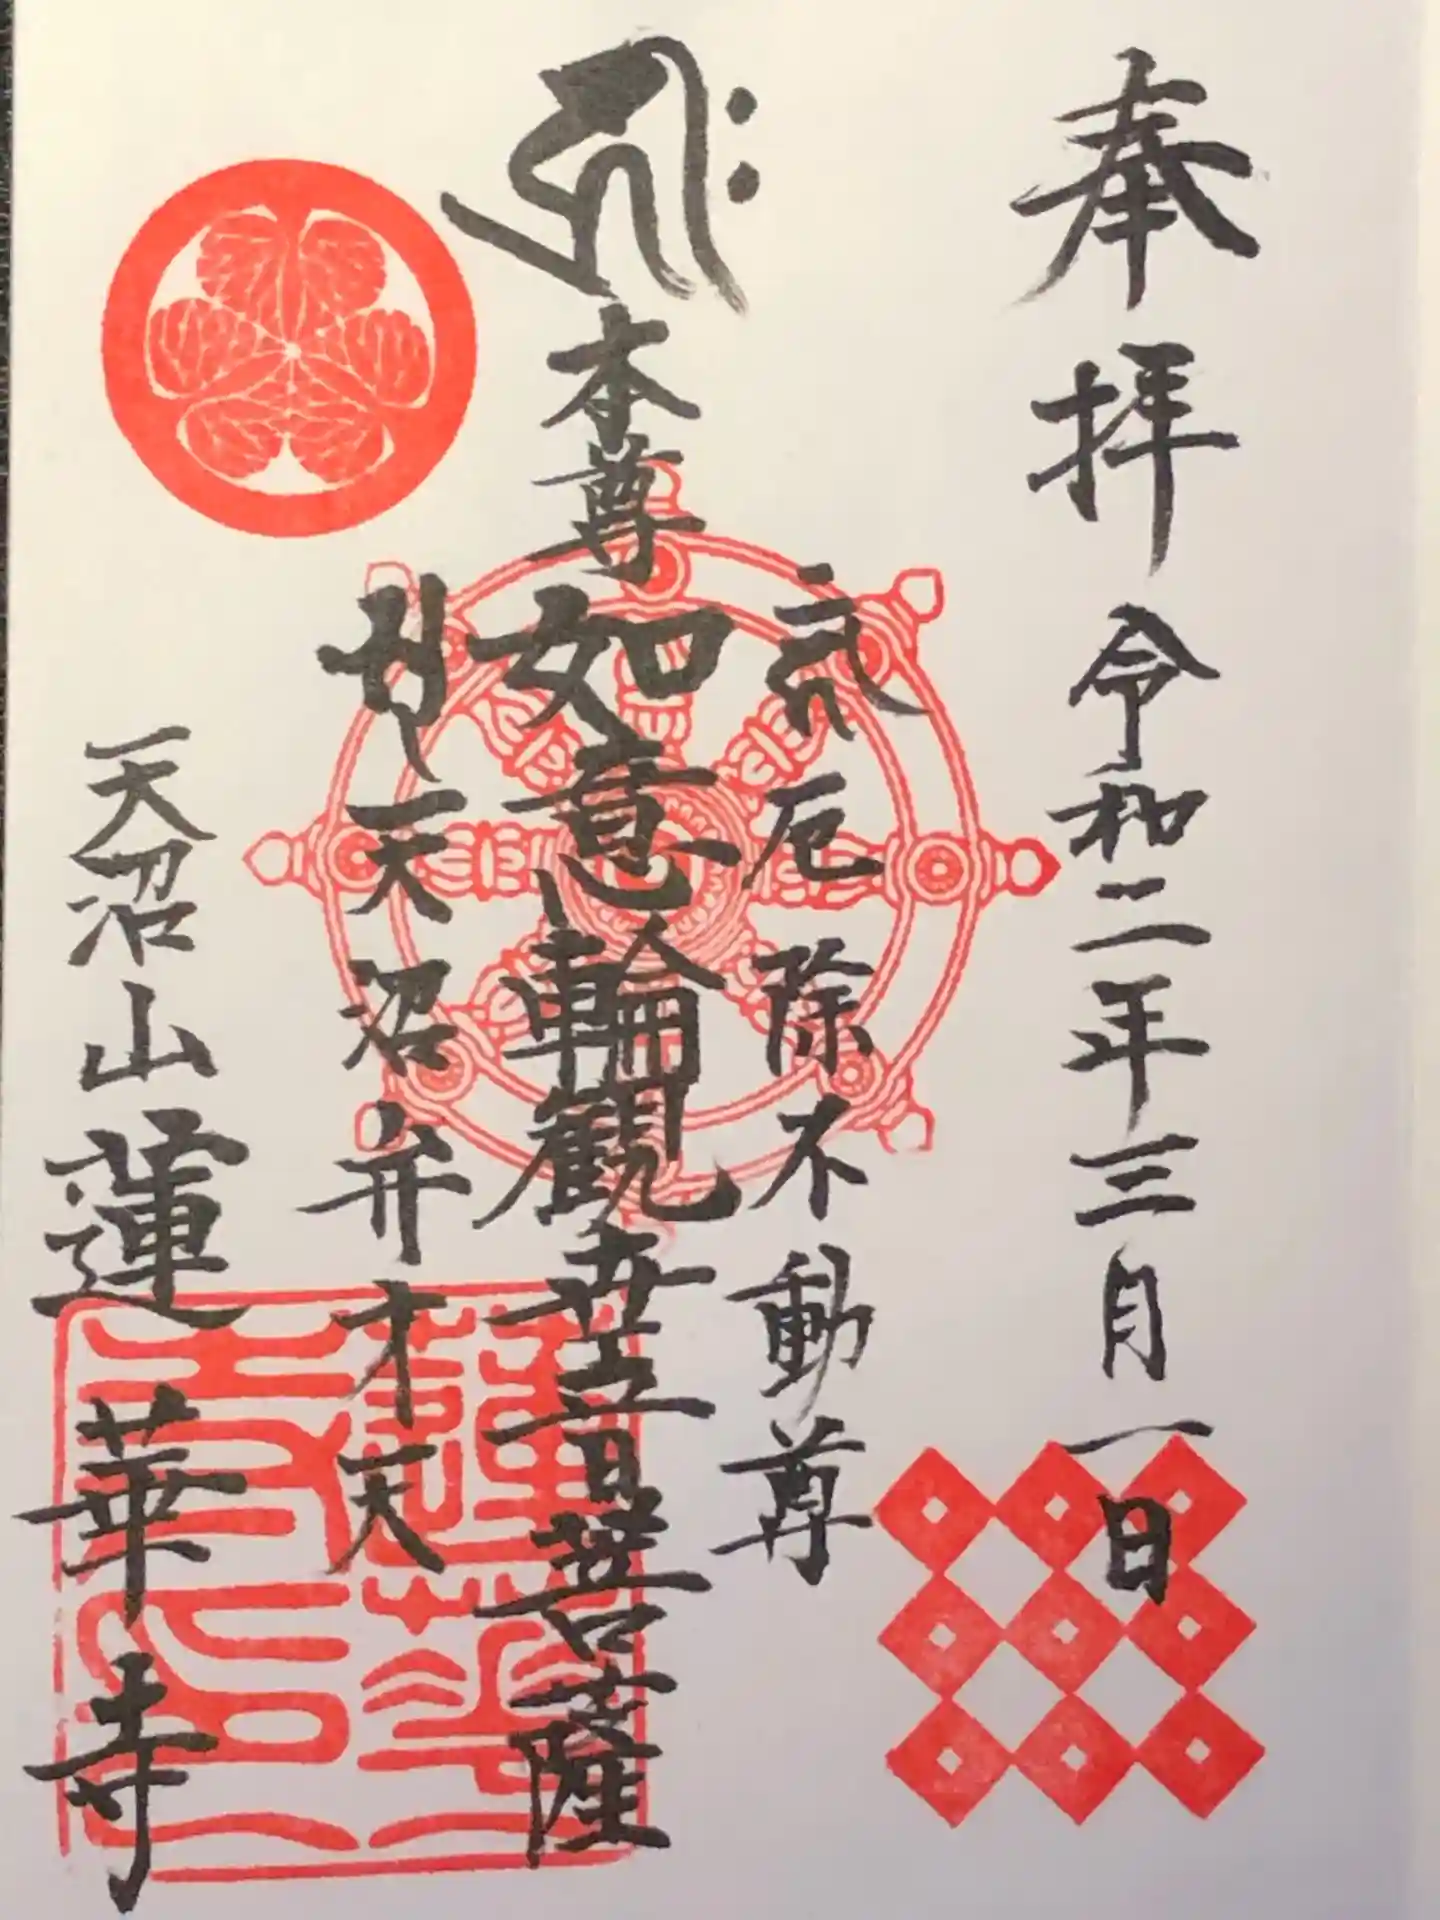 奉拝 令和二年三月一日
厄除不動尊
本尊如意輪観世音菩薩
天沼弁才天
天沼山蓮華寺
蓮華寺印